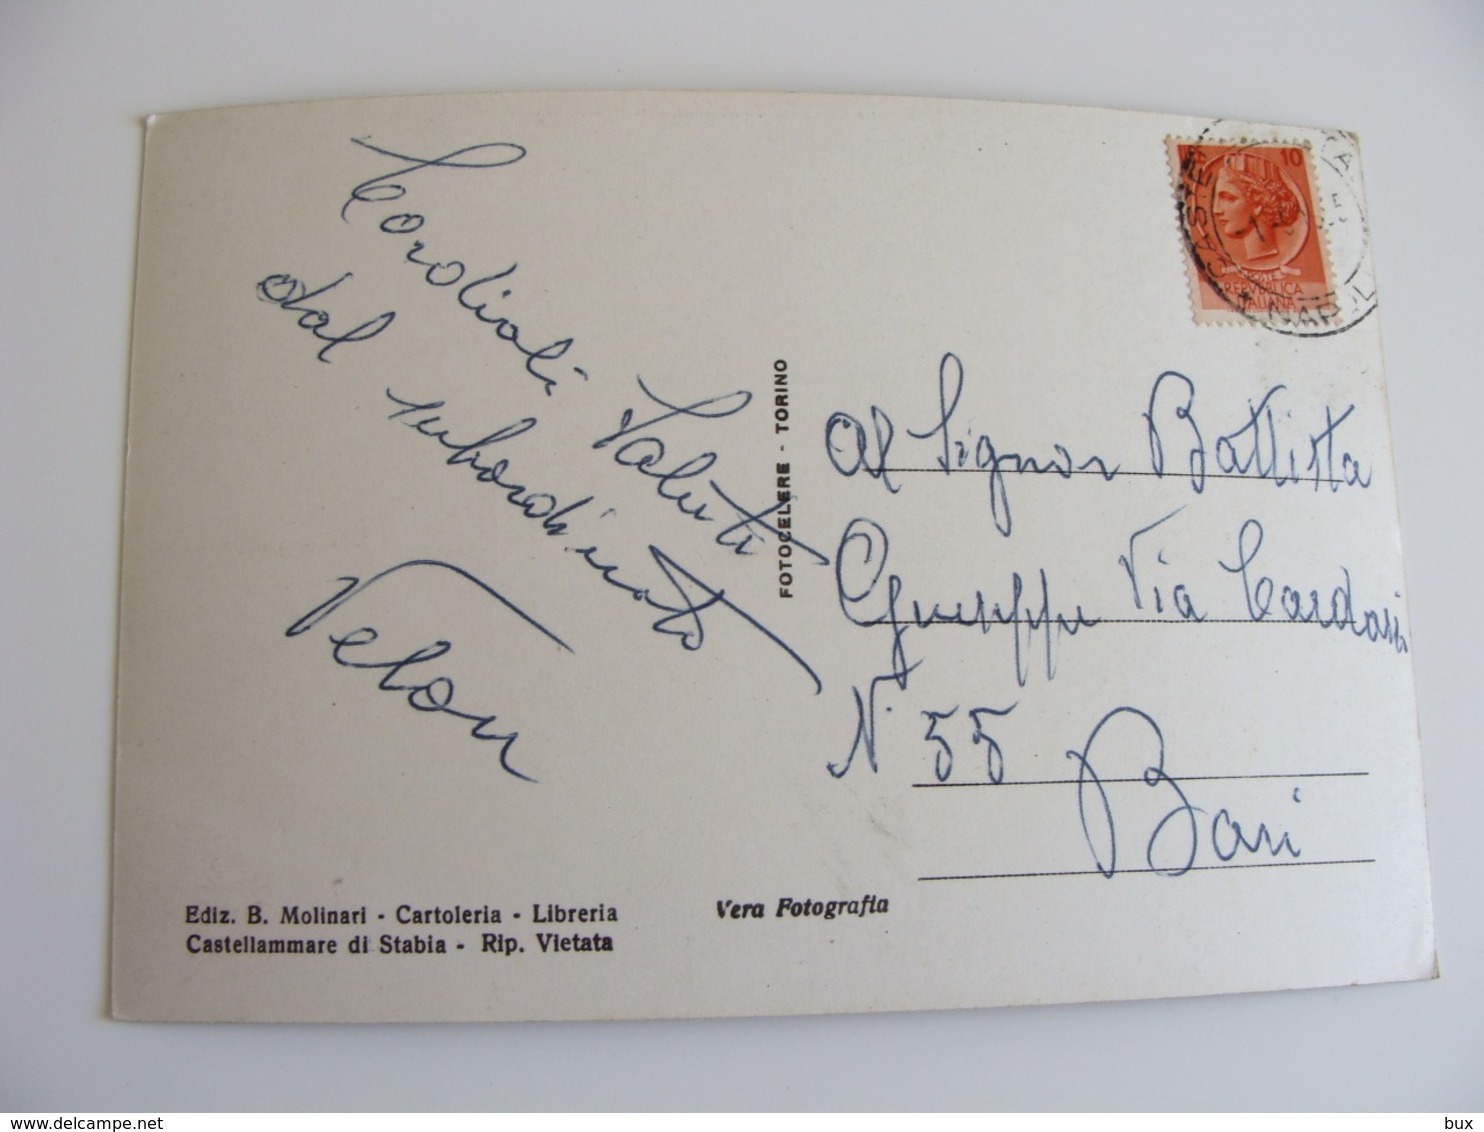 Cordiali Saluti
dal subordinato
Velon
FOTOCELERE - TORINO
LIRE 10
REPVBBLICA
ITALIANA
NAPOLI
Al Signor Battista
Giuseppe Via Cardassi
N. 55
Bari
Ediz. B. Molinari - Cartoleria - Libreria
Castellammare di Stabia - Rip. Vietata
Vera Fotografia
delcampe.net
bux